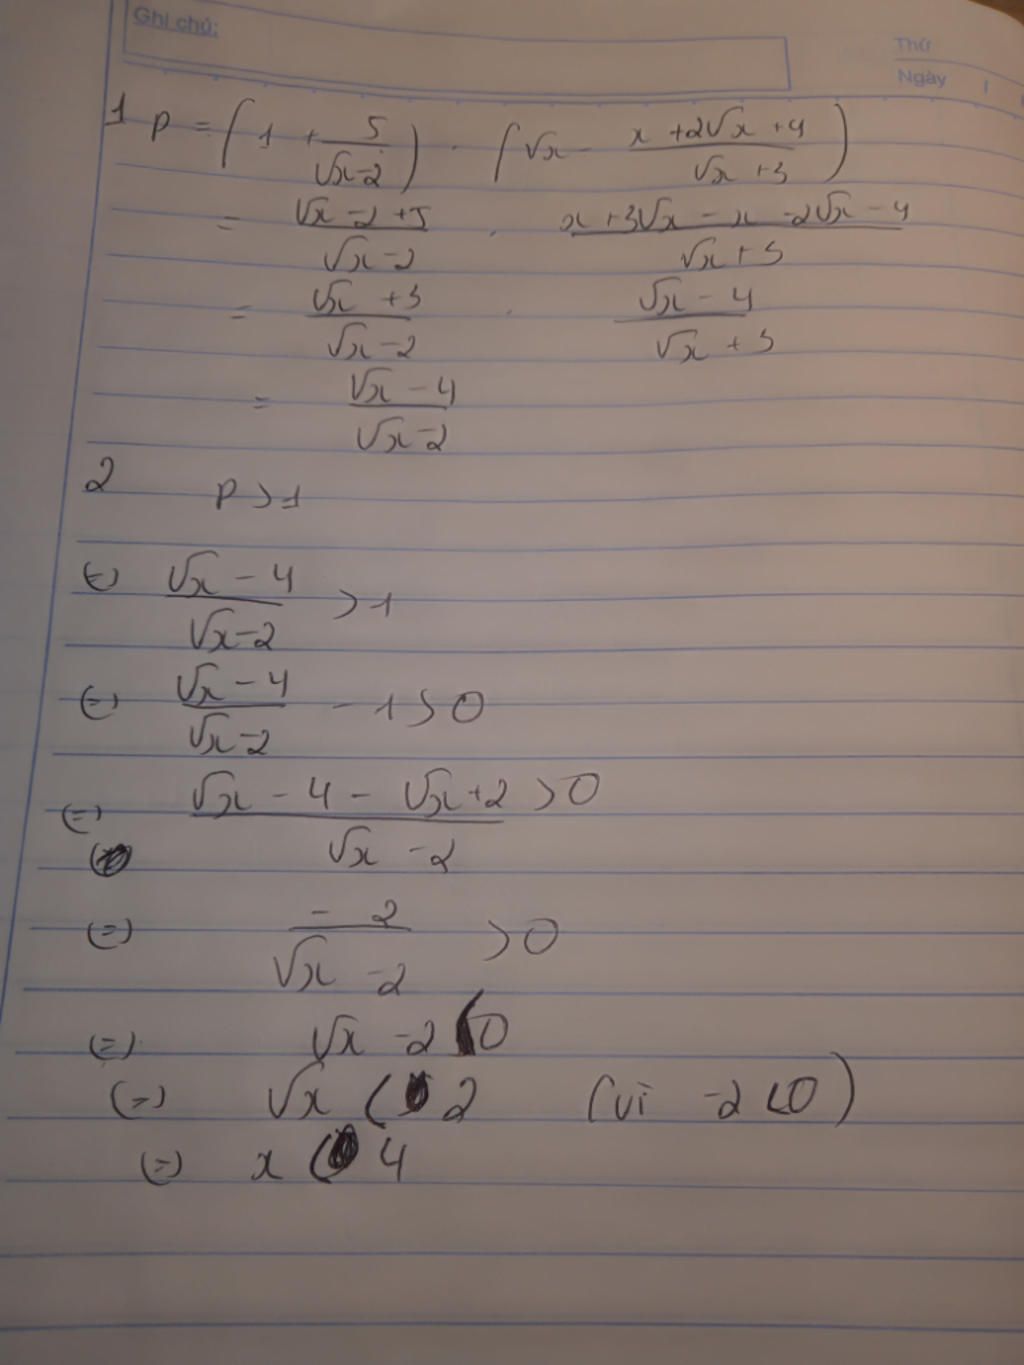 Ghi chú:
Thứ
Ngày / /
1 P = (1 + 5/(√x-2)) . (√x - (x+2√x+4)/(√x+3))
= (√x-2+5)/(√x-2) . (x+3√x-x-2√x-4)/(√x+3)
= (√x+3)/(√x-2) . (√x-4)/(√x+3)
= (√x-4)/(√x-2)
2 P>1
(=) (√x-4)/(√x-2) >1
(=) (√x-4)/(√x-2) -1>0
(=) (√x-4-√x+2)/(√x-2) >0
(=) -2/(√x-2) >0
(=) √x-2<0
(=) √x < 2 (vì -2<0)
(=) x < 4